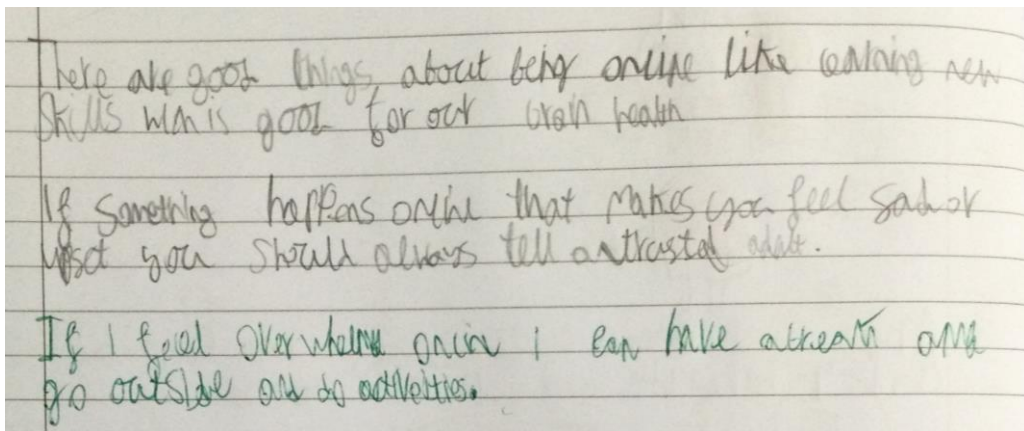 There are good things, about being online like learning new
skills which is good for our brain health
If something happens online that makes you feel sad or
upset you should always tell a trusted adult.
If I feel overwhelmed online I can have a break and
go outside and do activeties.